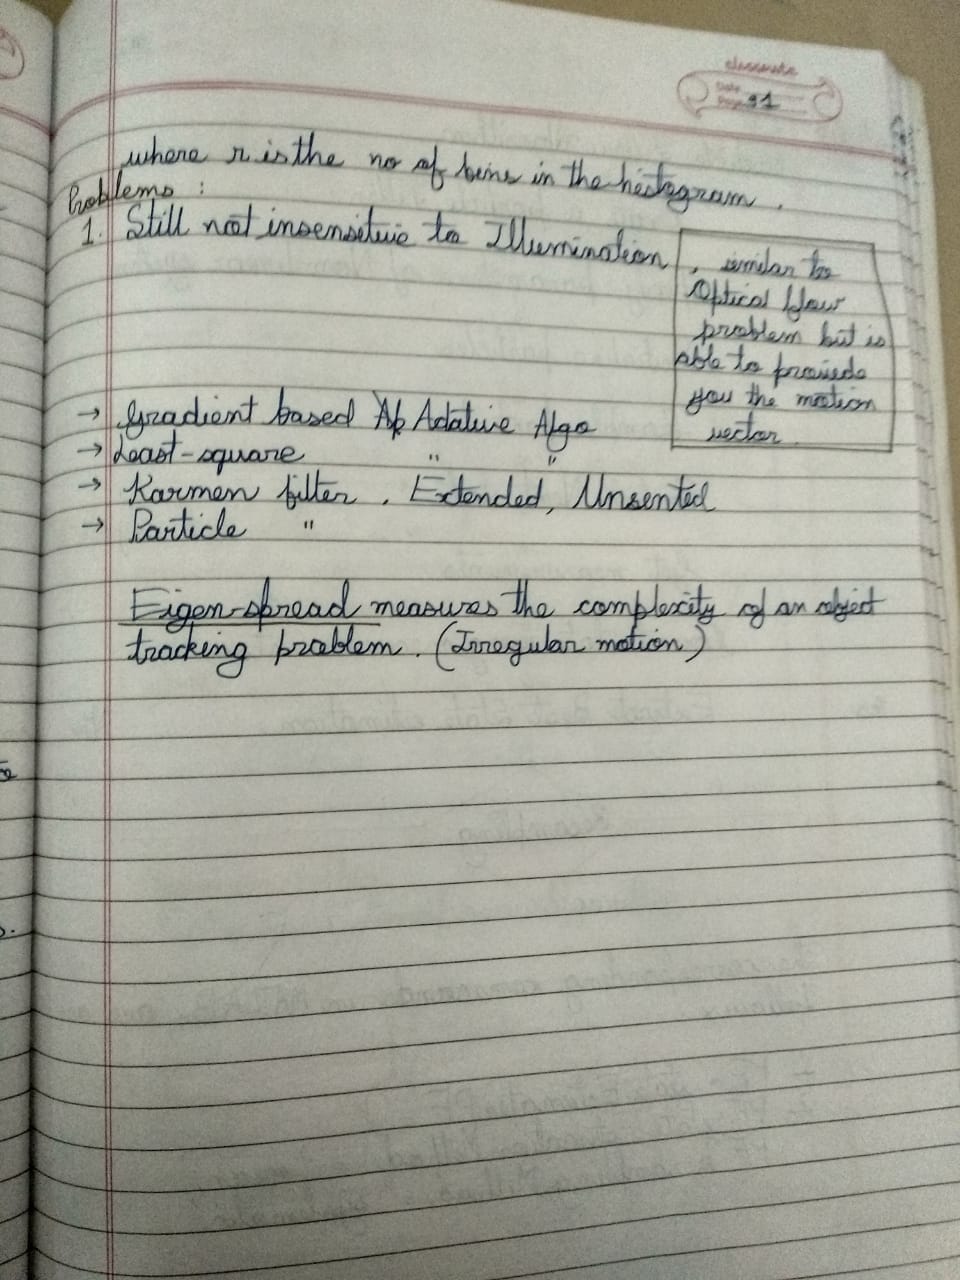 classmate
Date
Page 91
where r is the no of bins in the histogram.
Problems :
1. Still not insensitive to Illumination
, similar to
Optical flow
problem but is
able to provide
you the motion
vector.
→ Gradient based Adative Algo
→ Least-square " "
→ Karmen filter, Extended, Unsented
→ Particle "
Eigen-spread measures the complexity of an object
tracking problem. (Irregular motion)